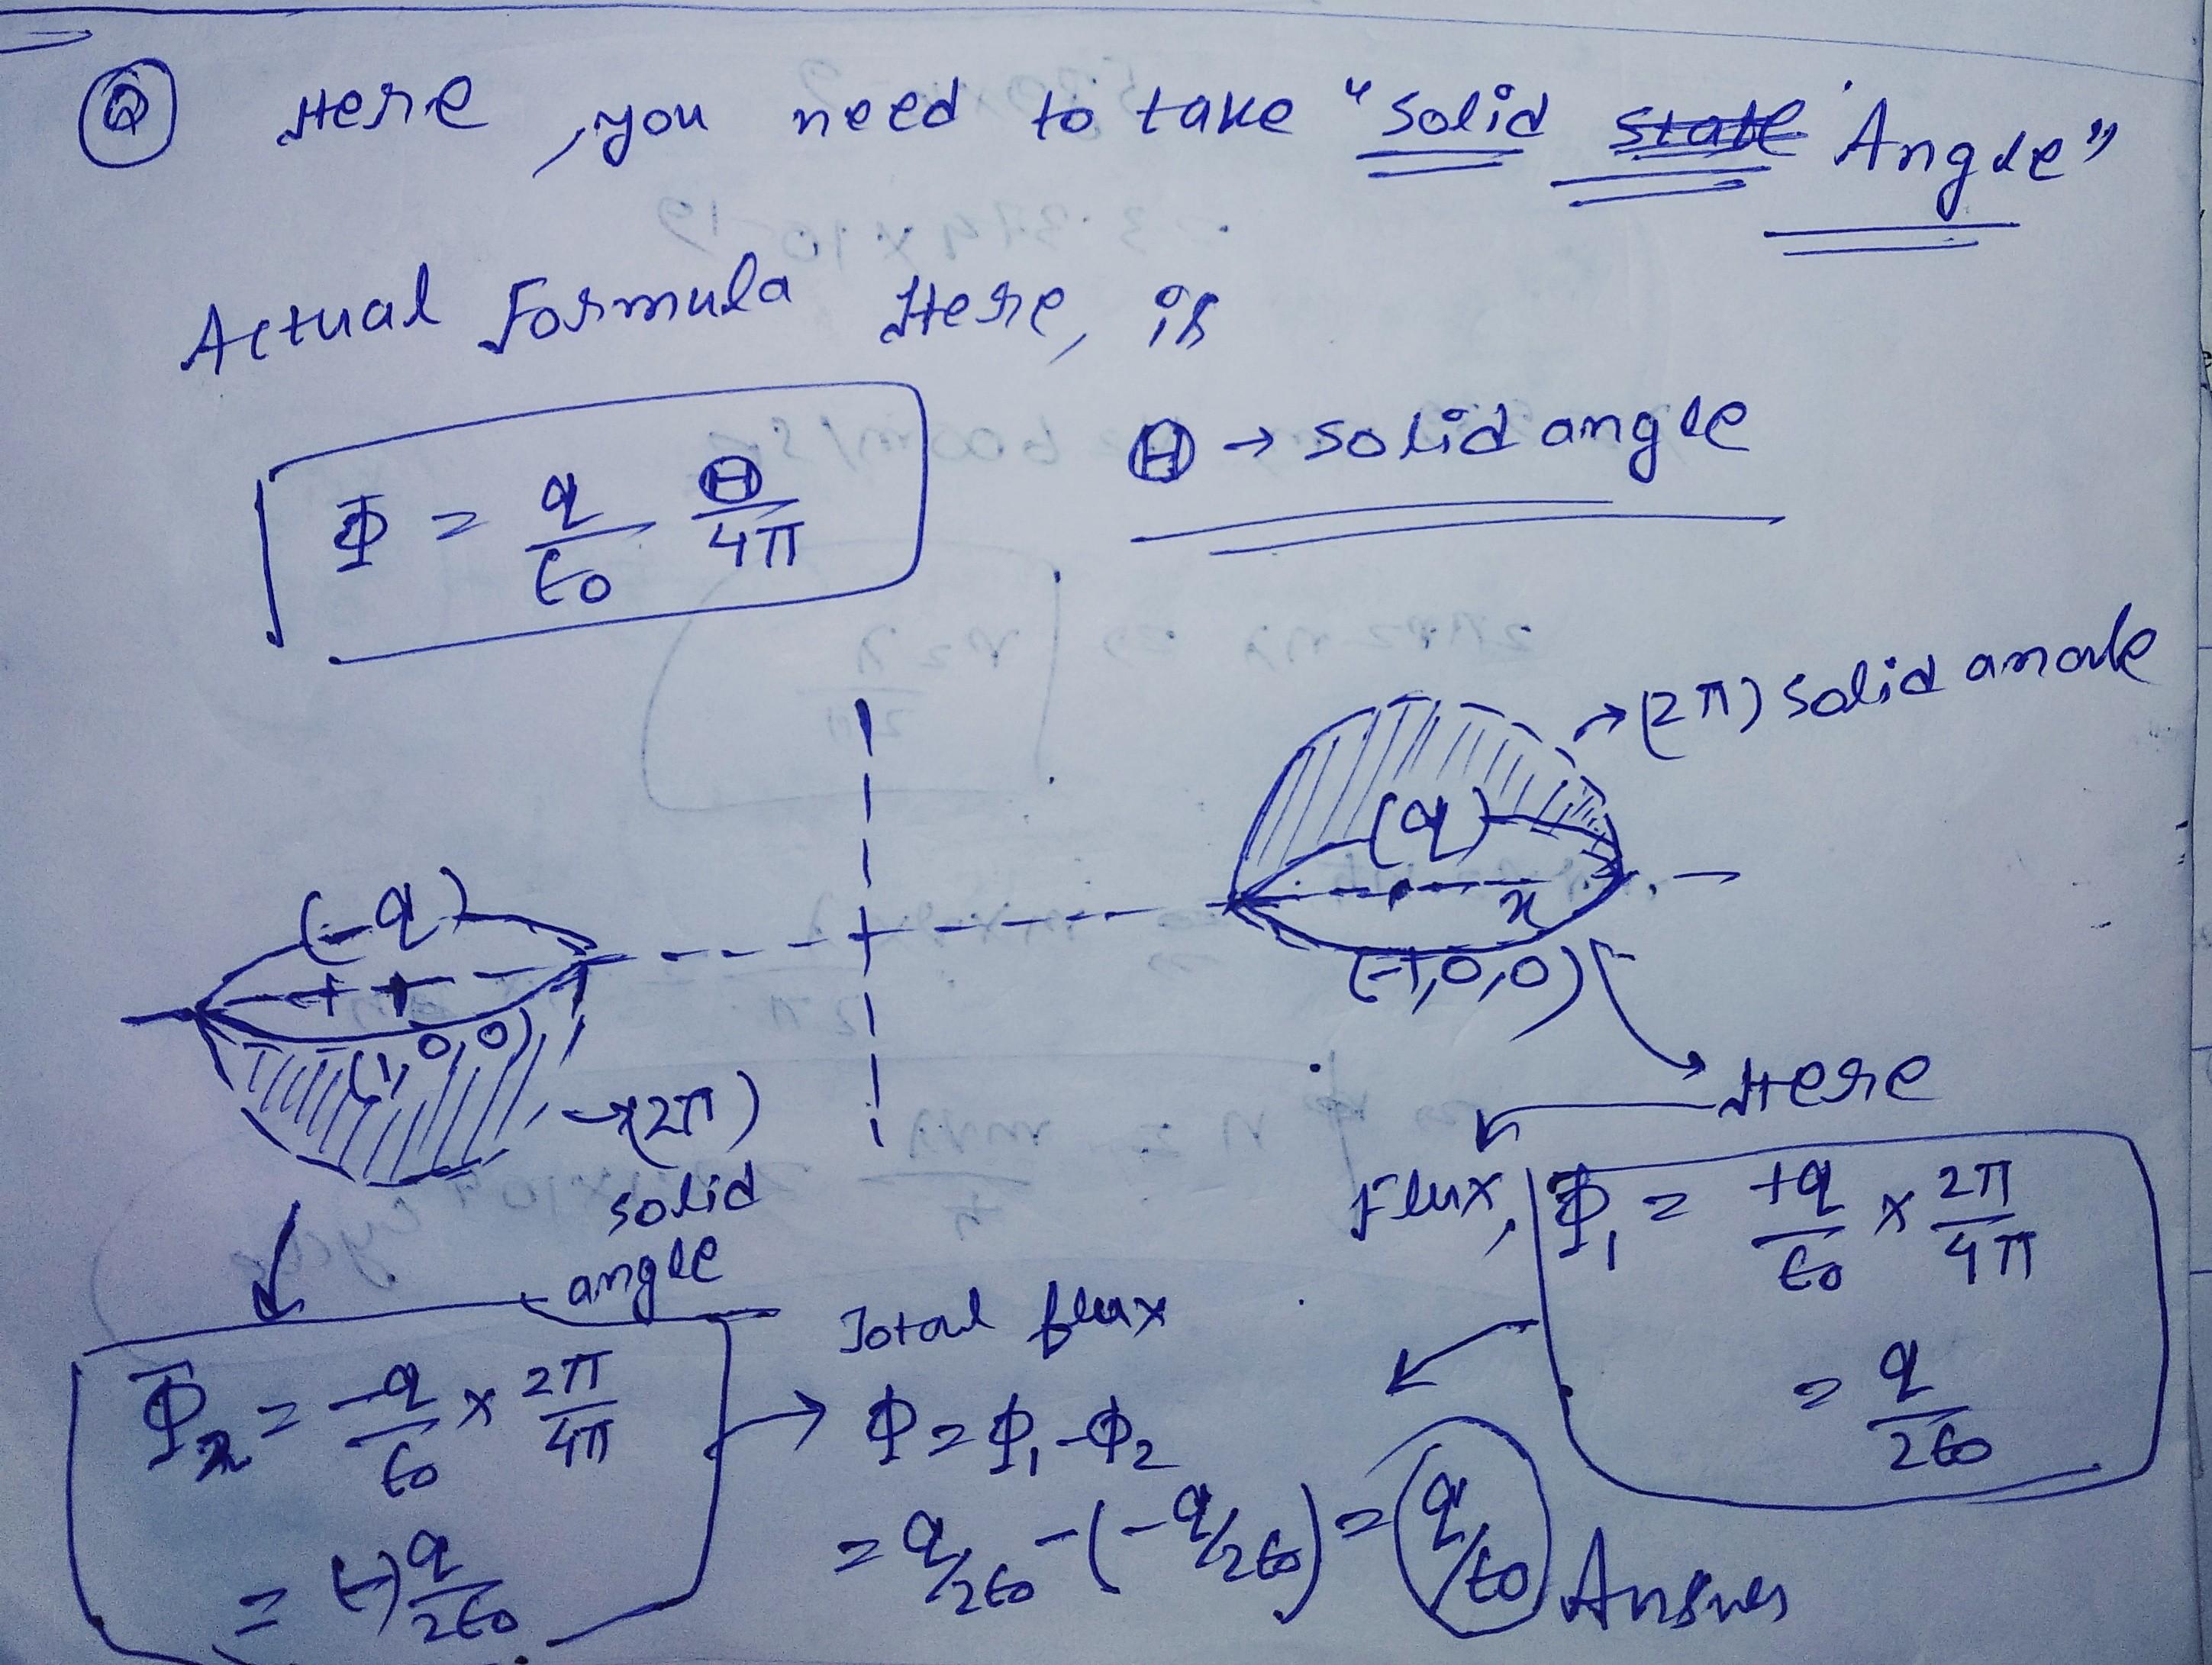 Q Here, you need to take "Solid State Angle"
Actual Formula Here, is
Φ = q/ε0 Θ/4π
Θ → solid angle
→(2π) solid angle
(q)
x
(-1,0,0)
(-q)
(1,0,0)
→(2π)
solid
angle
Here
Flux, Φ1 = +q/ε0 × 2π/4π
= q/2ε0
Φ2 = -q/ε0 × 2π/4π
= (-)q/2ε0
Total flux
Φ = Φ1 - Φ2
= q/2ε0 - (-q/2ε0) = q/ε0 Answer